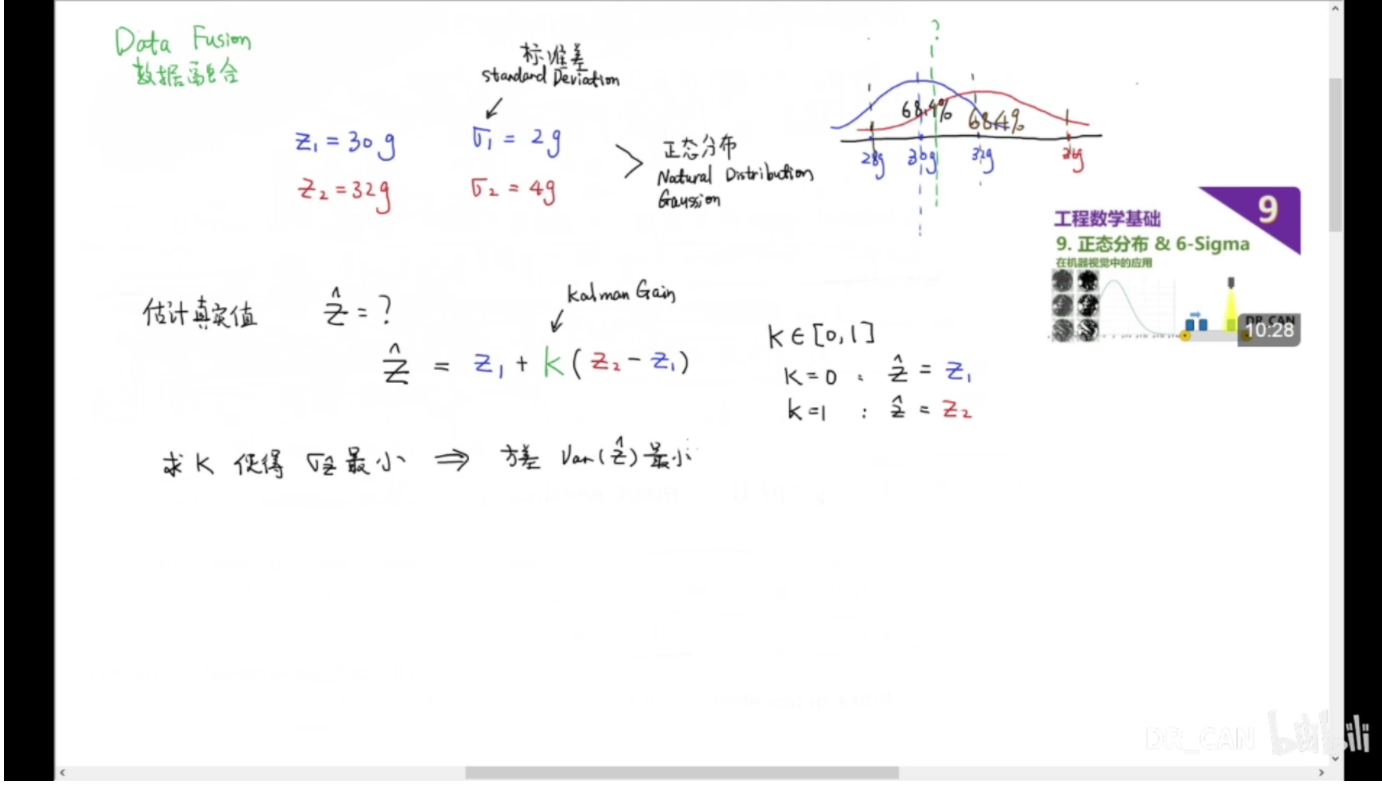 Data Fusion
数据融合
标准差
Standard Deviation
z₁ = 30g σ₁ = 2g
z₂ = 32g σ₂ = 4g
正态分布
Natural Distribution
Gaussion
?
68.4% 68.4%
28g 30g 32g 36g
工程数学基础
9
9. 正态分布 & 6-Sigma
在机器视觉中的应用
DR_CAN
10:28
估计真实值 ẑ = ?
Kalman Gain
ẑ = z₁ + k(z₂ - z₁)
k ∈ [0,1]
k=0 : ẑ = z₁
k=1 : ẑ = z₂
求 k 使得 σẑ 最小 ⇒ 方差 Var(ẑ) 最小
DR_CAN bilibili